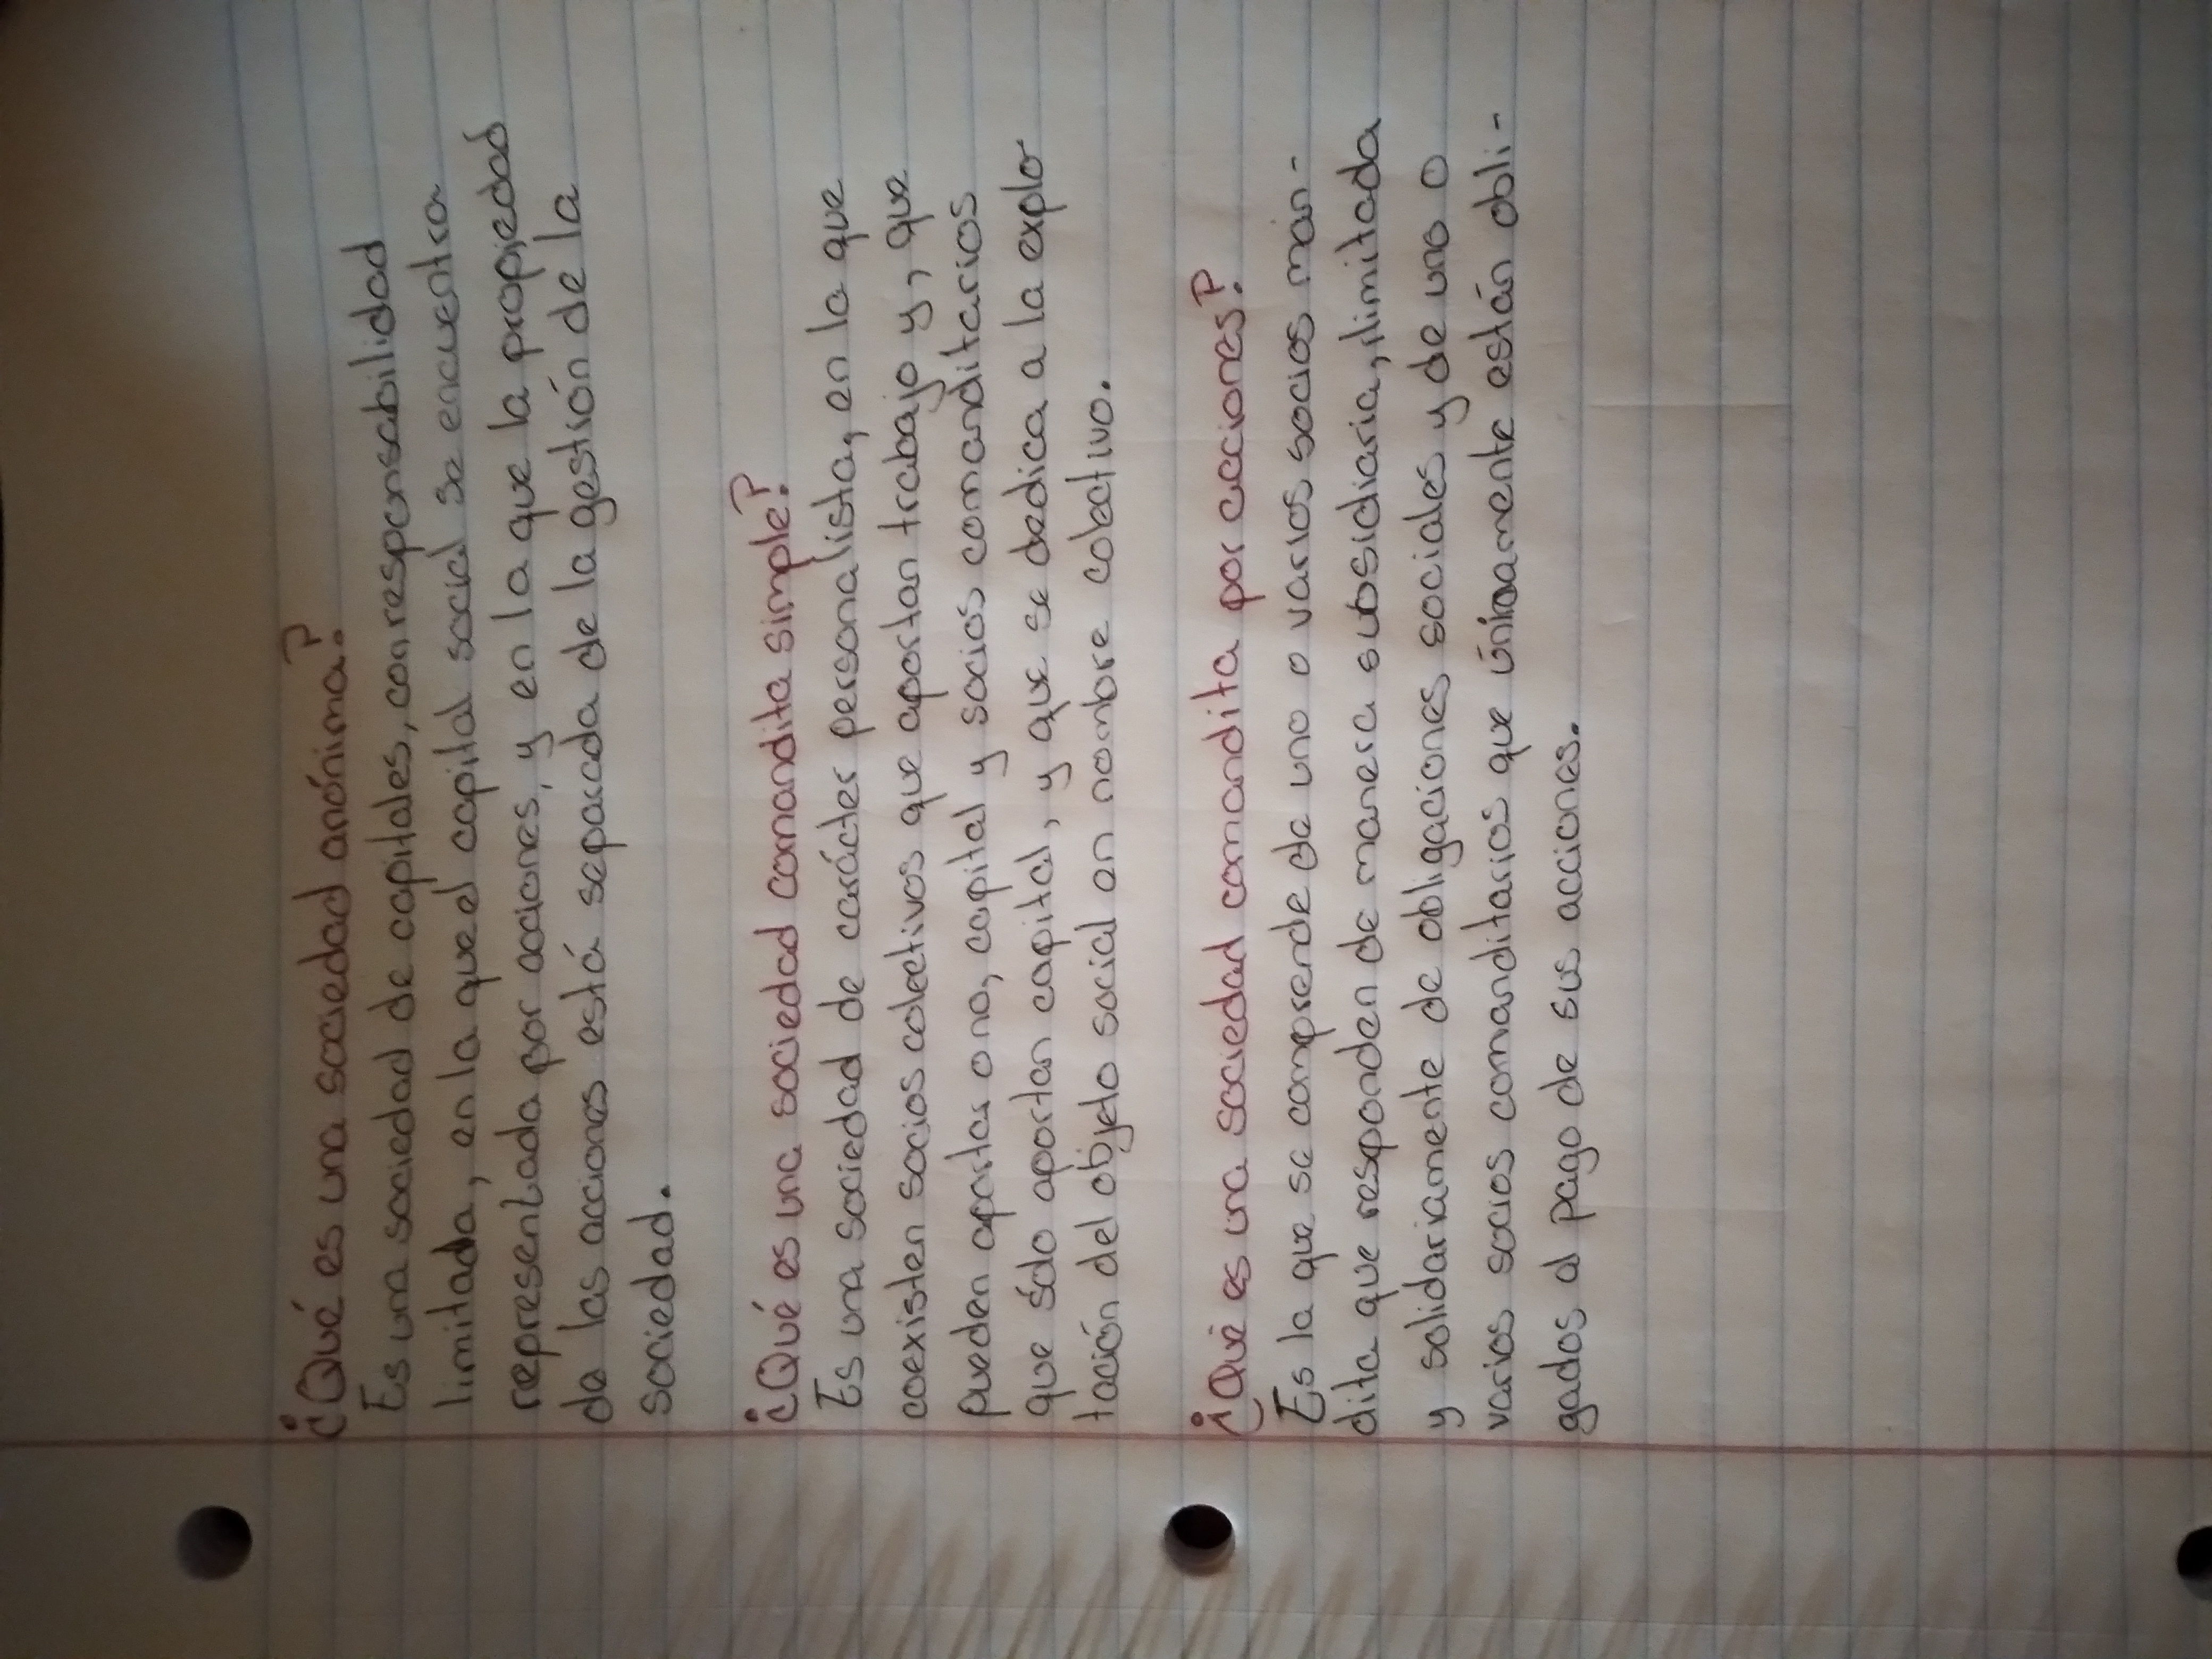 ¿Qué es una sociedad anónima?
Es una sociedad de capitales, con responsabilidad
limitada, en la que el capital social se encuentra
representada por acciones, y en la que la propiedad
de las acciones está separada de la gestión de la
sociedad.
¿Qué es una sociedad comandita simple?
Es una sociedad de carácter personalista, en la que
coexisten socios colectivos que aportan trabajo y, que
pueden aportar o no, capital y socios comanditarios
que sólo aportan capital, y que se dedica a la explo
tación del objeto social en nombre colectivo.
¿Qué es una sociedad comandita por acciones?
Es la que se comprende de uno o varios socios man-
dita que responden de manera subsidiaria, ilimitada
y solidariamente de obligaciones sociales y de uno o
varios socios comanditarios que únicamente están obli-
gados al pago de sus acciones.